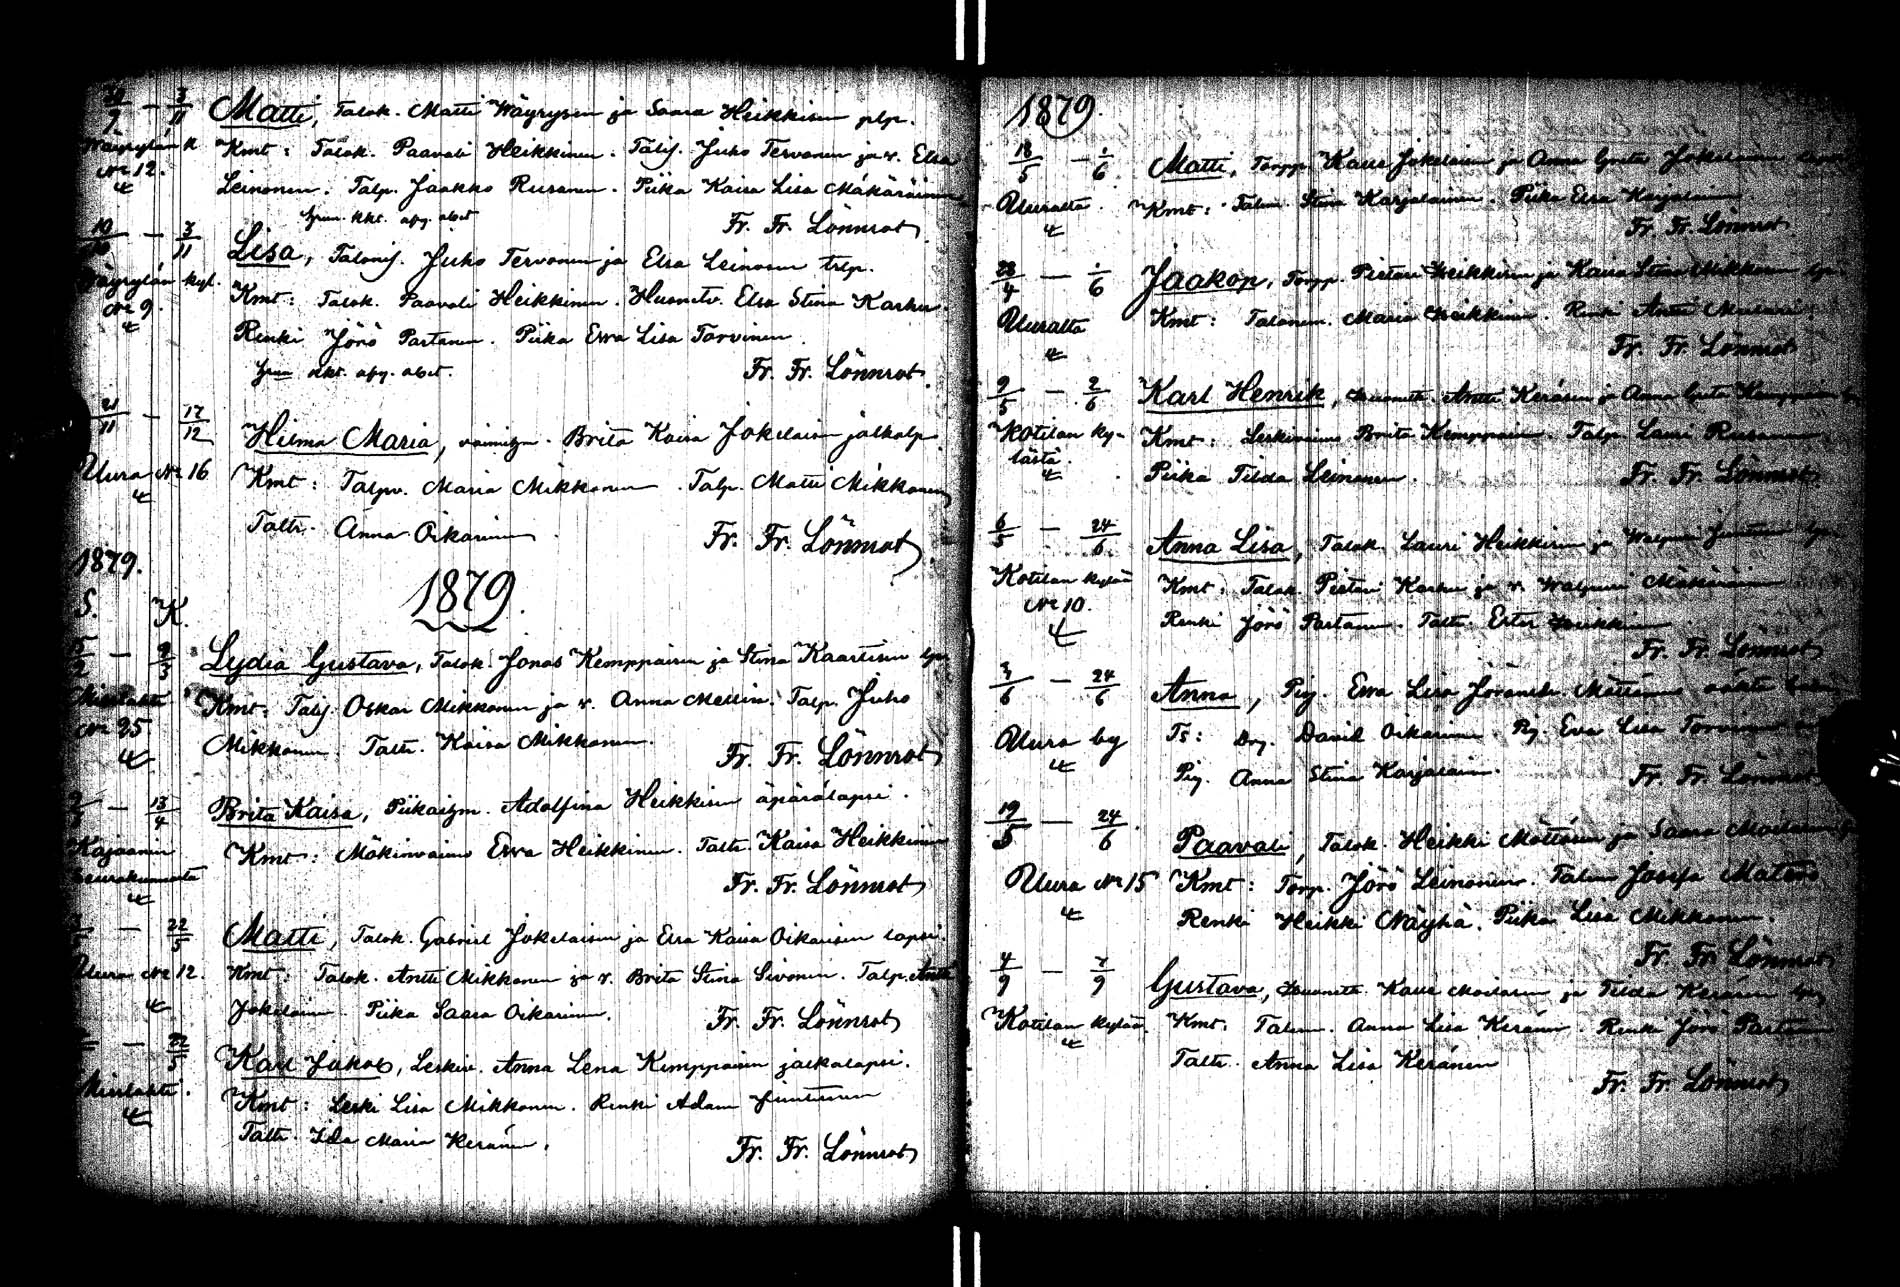 30/9 - 3/11 Matti, Talok. Matti Wäyrysen ja Saara Heikkisen plp.
Wäyrylän k. Kmt: Talok. Paavali Heikkinen. Talij. Juho Tervonen ja v. Elsa
No 12. Leinonen. Talp. Jaakko Rusanen. Piika Kaisa Lisa Mäkäräinen
4
Fr. Fr. Lönnrot
10/10 - 3/11 Lisa, Talonij. Juho Tervonen ja Elsa Leinosen trlp.
Wäyrylän kyl. Kmt: Talok. Paavali Heikkinen. Huonetv. Elsa Stina Karhu.
No 9. Renki Jörö Partanen. Piika Ewa Lisa Torvinen.
4
Fr. Fr. Lönnrot
21/11 - 17/12 Hilma Maria, Brita Kaisa Jokelaisen jalkalp.
Uura No 16 Kmt: Talpv. Maria Mikkonen. Talp. Matti Mikkonen
4 Taltr. Anna Oikarinen.
Fr. Fr. Lönnrot
1879.
1879.
S. K.
5/2 - 2/3 Lydia Gustava, Talok. Jonas Kemppaisen ja Stina Kaartisen lps.
Mieslahti Kmt: Talij. Oskar Mikkonen ja v. Anna Mellin. Talp. Juho
No 25 Mikkonen. Taltr. Kaisa Mikkonen.
4 Fr. Fr. Lönnrot
13/4 Brita Kaisa, Piikaizm. Adolfina Heikkisen äpärälapsi.
Kajaanin Kmt: Mökinvaimo Ewa Heikkinen. Taltr. Kaisa Heikkinen
Seurakunnasta
4 Fr. Fr. Lönnrot
- 22/5 Matti, Talok. Gabriel Jokelaisen ja Elsa Kaisa Oikarisen lapsi.
Uura No 12. Kmt: Talok. Antti Mikkonen ja v. Brita Stina Sivonen. Talp. Antti
4 Jokelainen. Piika Saara Oikarinen.
Fr. Fr. Lönnrot
- 22/5 Karl Jakob, Leskiv. Anna Lena Kemppaisen jalkalapsi.
Mieslahti. Kmt: Leski Lisa Mikkonen. Renki Adam Juntunen
4 Taltr. Ida Maria Keränen.
Fr. Fr. Lönnrot
1879.
18/5 - 1/6 Matti, Torpp. Kaus Jokelaisen ja Anna Greta Jokelaisen lapsi
Uuralta. Kmt: Talon. Stina Karjalainen. Piika Elsa Karjalainen
4 Fr. Fr. Lönnrot.
28/4 - 1/6 Jaakop, Torpp. Pietari Heikkisen ja Kaisa Stina Mikkosen lps.
Uuralta Kmt: Talonem. Maria Heikkinen. Renki Antti
4 Fr. Fr. Lönnrot
9/5 - 2/6 Karl Henrik, Huonem. Antti Keräsen ja Anna Greta Kemppaisen
Kotilan ky- Kmt: Leskivaimo Brita Kemppainen. Talp. Lauri Rusanen.
lästä.
4 Piika Tilda Leinonen. Fr. Fr. Lönnrot
6/5 - 24/6 Anna Lisa, Talok. Lauri Heikkisen ja Walpuri Juntusen lps.
Kotilan kylää Kmt: Talok. Pietari Karhu ja v. Walpuri Mäkäräinen
No 10. Renki Jörö Partanen. Taltr. Ester Heikkinen
4 Fr. Fr. Lönnrot
3/6 - 24/6 Anna, Pig. Ewa Lisa Möttönens oäkta
Uura by Ts: Drg. David Oikarinen. Pig. Eva Lisa Torvinen
4 Pig. Anna Stina Karjalainen.
Fr. Fr. Lönnrot
19/5 - 24/6 Paavali, Talok. Heikki Möttösen ja Saara Moilasen
Uura No 15 Kmt: Torp. Jörö Leinonen. Talon Josefa Matero
4 Renki Heikki Näyhä. Piika Lisa Mikkonen.
Fr. Fr. Lönnrot
4/9 - 7/9 Gustava, Huonem. Kaus Moilasen ja Tilda Keräsen lps.
Kotilan kylää. Kmt: Talon. Anna Lisa Keränen. Renki Jörö Partanen
4 Taltr. Anna Lisa Keränen
Fr. Fr. Lönnrot